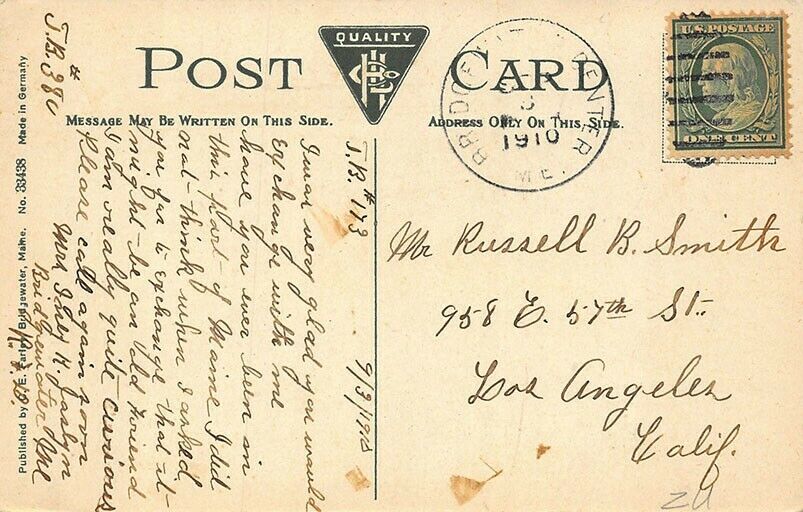 POST CARD
QUALITY
MESSAGE MAY BE WRITTEN ON THIS SIDE.
ADDRESS ONLY ON THIS SIDE.
BRIDGEWATER CENTER
3
1910
ME.
U.S. POSTAGE
ONE CENT
J.B. #173
9/3/1910
I was very glad you would
exchange with me
have you ever been in
this part of Maine I did
not think when I asked
you for to exchange that it
might be an old friend
I am really quite curious
Please call again soon
Mrs Inez H. Joslyn
Bridgewater Me
J.B. #380
Mr Russell B. Smith
958 E. 57th St.
Los Angeles
Calif.
Published by E. Farley, Bridgewater, Maine. No. 33438 Made in Germany